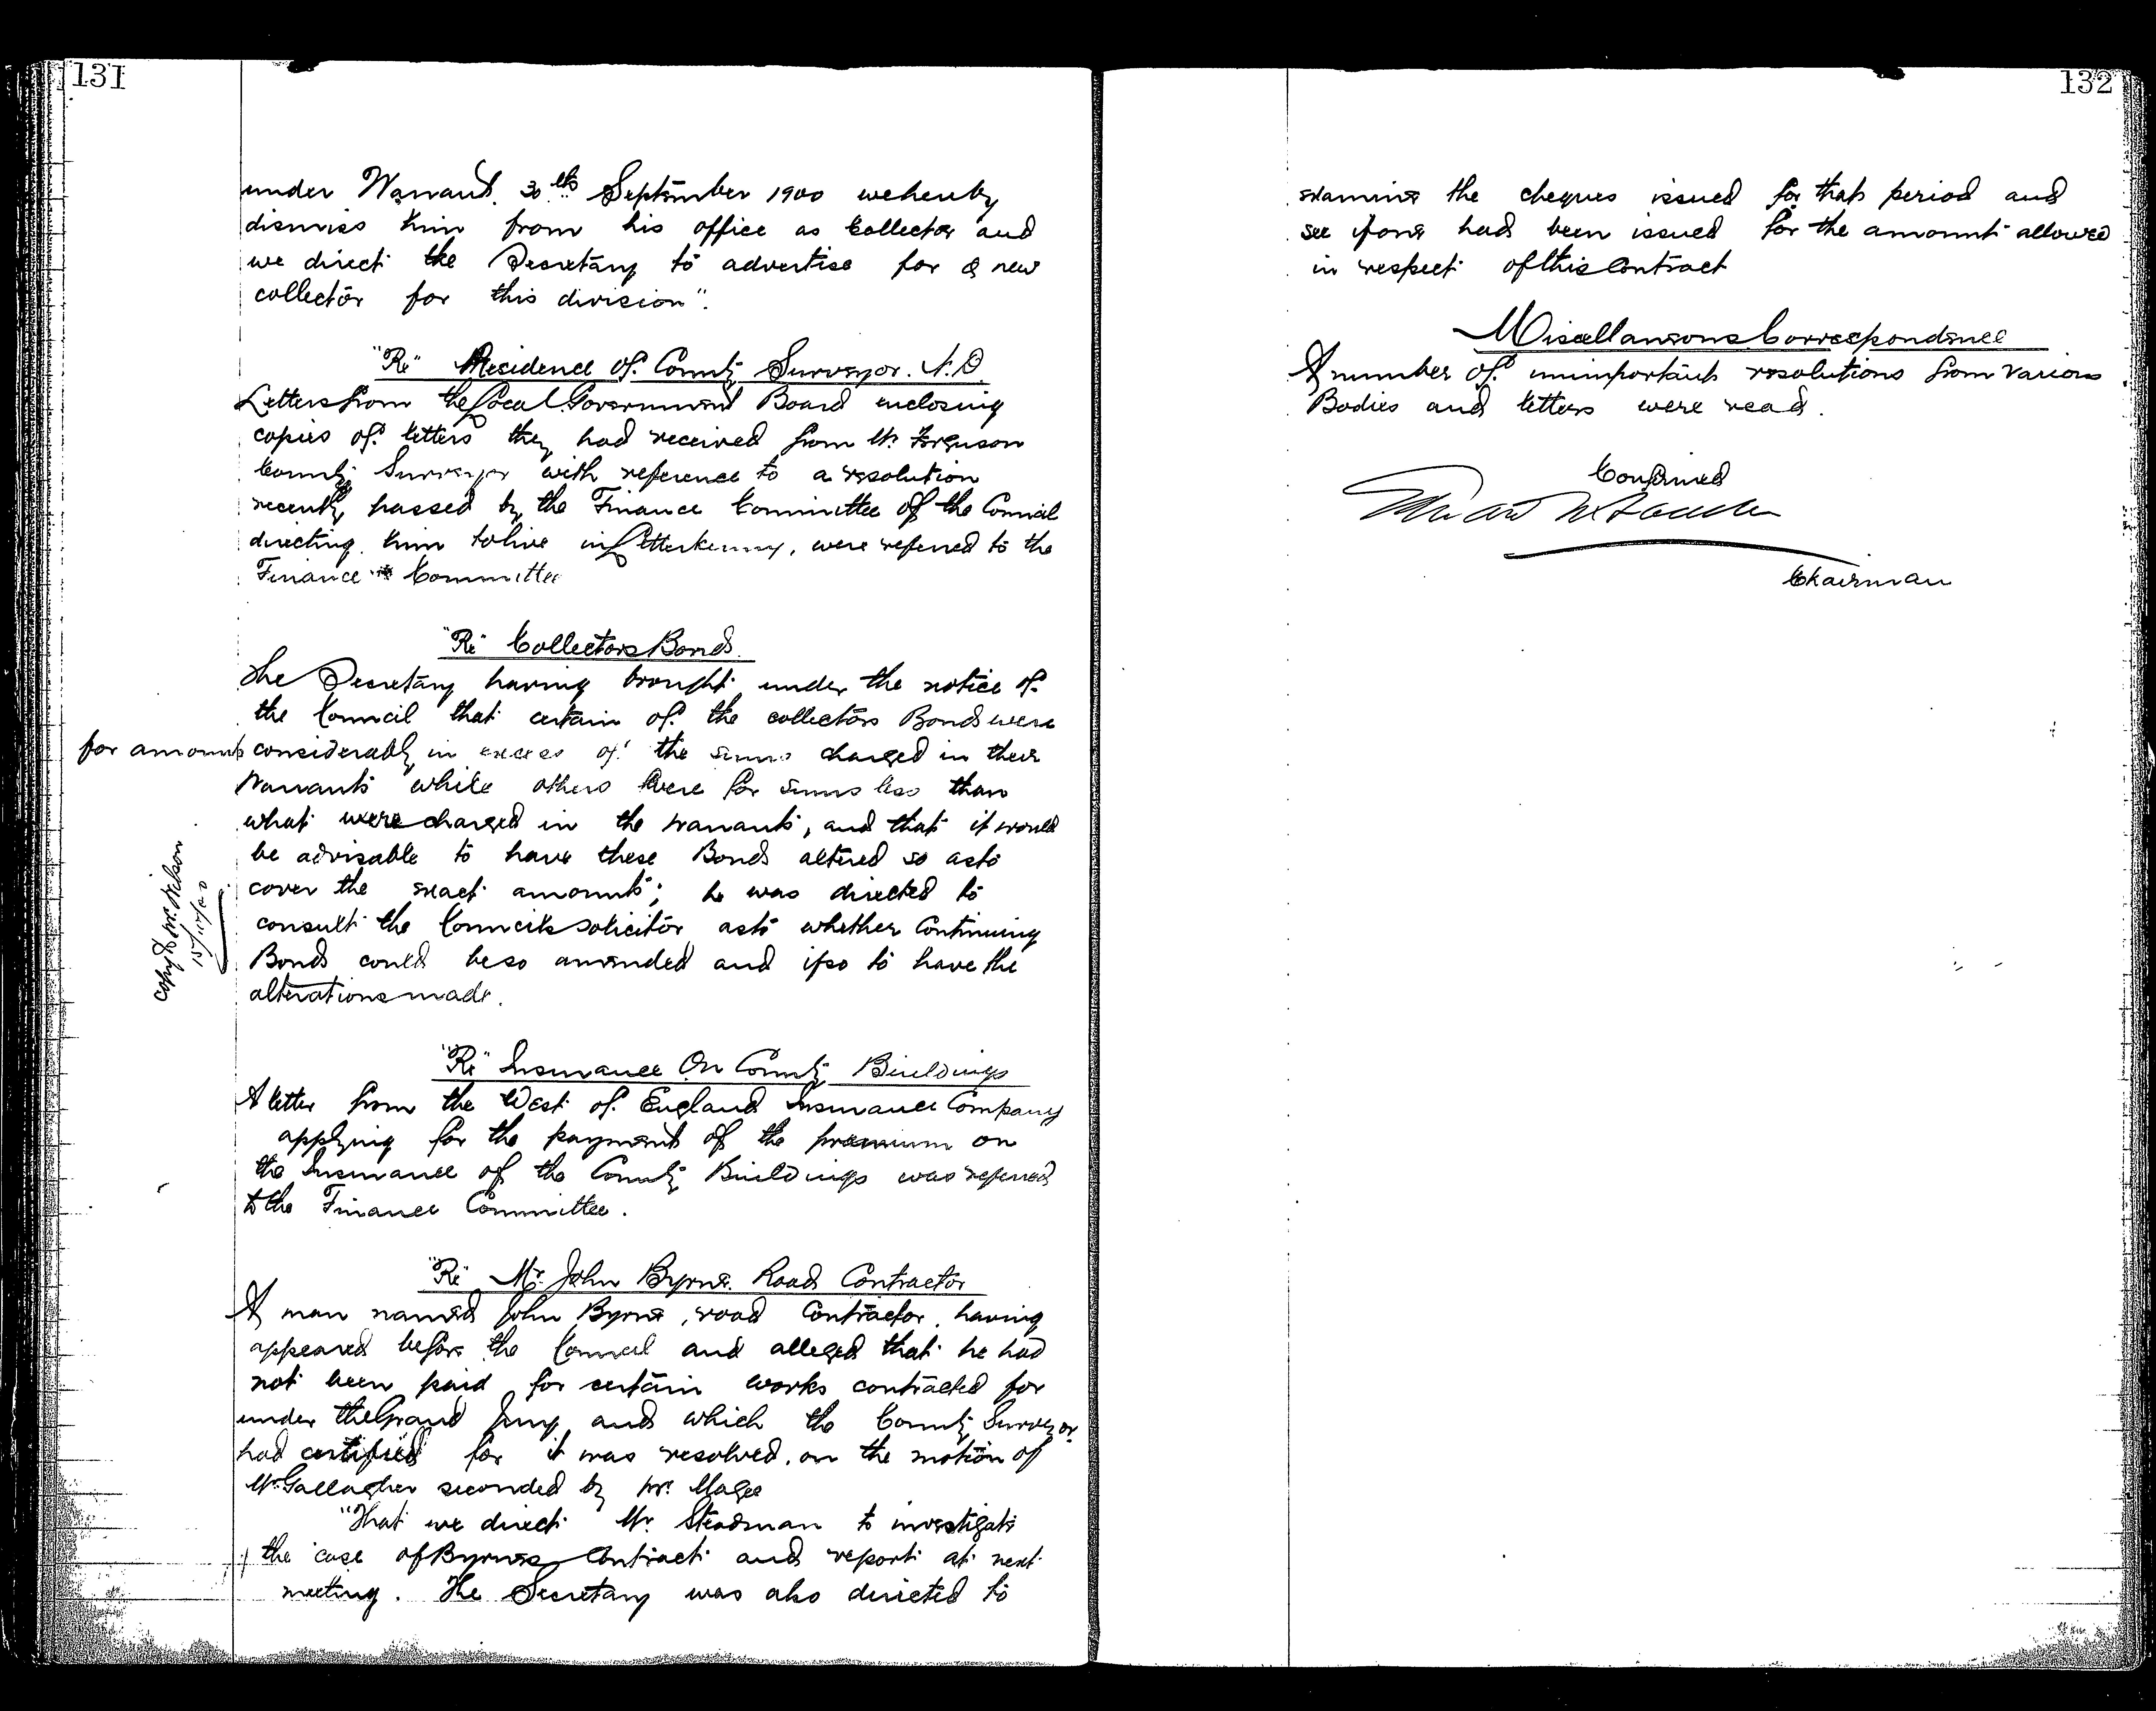 131
under Warrant. 30th September 1900 we hereby
dismiss him from his office as Collector and
we direct the Secretary to advertise for a new
collector for this division".
"Re" Residence of County Surveyor. N.D
Letters from the Local Government Board enclosing
copies of letters they had received from Mr. Ferguson
County Surveyor with reference to a resolution
recently passed by the Finance Committee of the Council
directing him to live in Letterkenny, were referred to the
Finance Committee
"Re" Collectors Bonds.
The Secretary having brought under the notice of
the Council that certain of the collectors Bonds were
for amounts considerably in excess of the sums charged in their
Warrants while others were for sums less than
what were charged in the warrants, and that it would
be advisable to have these Bonds altered so as to
cover the exact amounts; he was directed to
consult the Councils solicitor as to whether Continuing
Bonds could be so amended and if so to have the
alterations made.
copy to Mr. Wilson
"Re" Insurance On County Buildings
A letter from the West of England Insurance Company
applying for the payment of the premium on
the Insurance of the County Buildings was referred
to the Finance Committee.
"Re" Mr. John Byrne. Road Contractor
A man named John Byrne, road Contractor, having
appeared before the Council and alleged that he had
not been paid for certain works contracted for
under the Grand Jury and which the County Surveyor
had certified for it was resolved, on the motion of
Mr. Gallagher seconded by Mr. Magee
"That we direct Mr. Steadman to investigate
the case of Byrnes Contract and report at next
meeting. The Secretary was also directed to
132
examine the cheques issued for that period and
see if one had been issued for the amount allowed
in respect of this Contract
Miscellaneous Correspondence
A number of unimportant resolutions from various
Bodies and letters were read.
Confirmed
Chairman